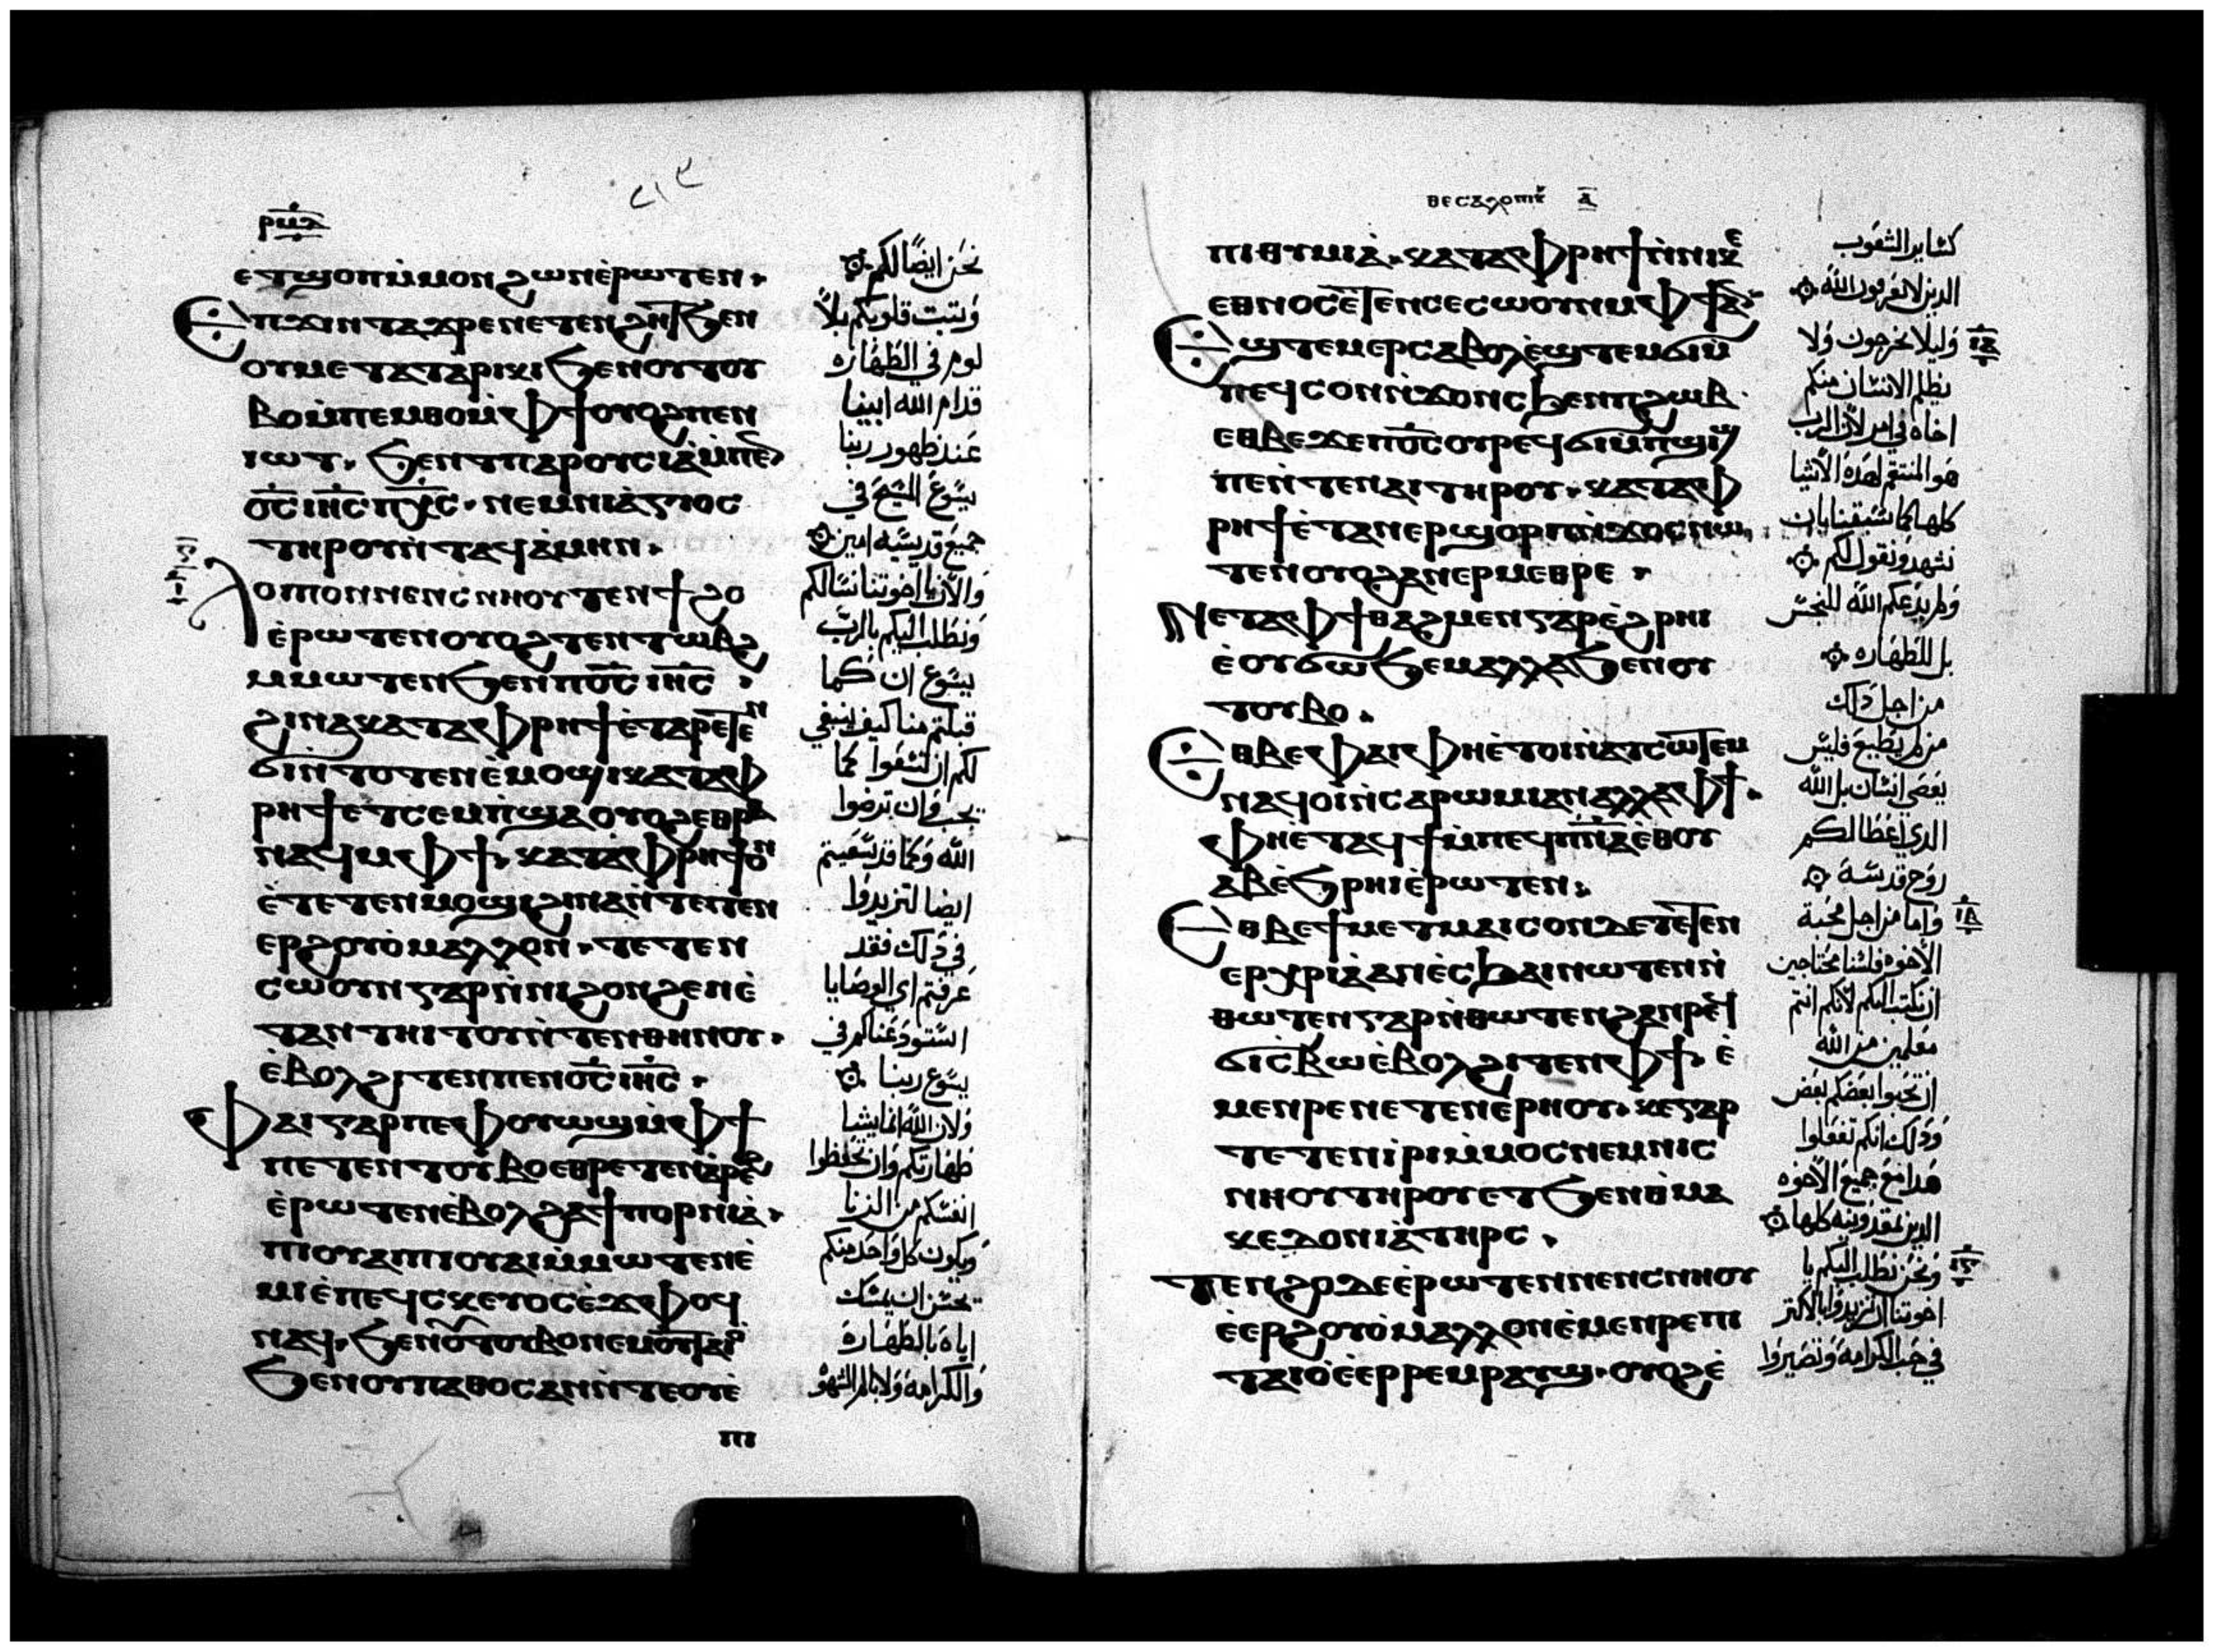 ⲣⲙⲗ
ⲉⲧϣⲟⲡ ⲙ̀ⲙⲟⲛ ϩⲱⲛ ⲉ̀ⲣⲱⲧⲉⲛ.
Ⲉⲡϫⲓⲛⲧⲁϫⲣⲉ ⲛⲉⲧⲉⲛϩⲏⲧ ϧⲉⲛ
ⲟⲩⲙⲉⲧⲁⲧⲁⲣⲓⲕⲓ ϧⲉⲛ ⲟⲩⲧⲟⲩ
ⲃⲟ ⲙ̀ⲡⲉⲙⲑⲟ ⲙ̀ⲫϯ ⲟⲩⲟϩ ⲡⲉⲛ
ⲓⲱⲧ. ϧⲉⲛ ⲧⲡⲁⲣⲟⲩⲥⲓⲁ̀ ⲙ̀ⲡⲉⲛ
ⲟ̅ⲥ̅ ⲓⲏ̅ⲥ̅ ⲡⲭ̅ⲥ̅. ⲛⲉⲙ ⲛⲓⲁ̀ⲅⲓⲟⲥ
ⲧⲏⲣⲟⲩ ⲛ̀ⲧⲁϥ ⲁ̀ⲙⲏⲛ.
Ⲗⲟⲓⲡⲟⲛ ⲛⲉⲛⲥⲛⲏⲟⲩ ⲧⲉⲛϯϩⲟ
ⲉ̀ⲣⲱⲧⲉⲛ ⲟⲩⲟϩ ⲧⲉⲛⲧⲱⲃϩ
ⲙⲙⲱⲧⲉⲛ ϧⲉⲛ ⲡⲟ̅ⲥ̅ ⲓⲏ̅ⲥ̅.
ϩⲓⲛⲁ ⲕⲁⲧⲁ ⲫⲣⲏϯ ⲉ̀ⲧⲁⲣⲉⲧⲉⲛ
ϭⲓ ⲛ̀ⲧⲟⲧⲉⲛ ⲉ̀ⲙⲟϣⲓ ⲕⲁⲧⲁ ⲫ
ⲣⲏϯ ⲉⲧⲥⲉⲙⲡϣⲁ ⲟⲩⲟϩ ⲉⲑⲣⲁ
ⲛⲁϥ ⲙ̀ⲫϯ. ⲕⲁⲧⲁ ⲫⲣⲏϯ ⲟⲛ
ⲉ̀ⲧⲉⲧⲉⲛⲙⲟϣⲓ ϩⲓⲛⲁ ⲛ̀ⲧⲉⲧⲉⲛ
ⲉⲣϩⲟⲩⲟ̀ ⲙⲁⲗⲗⲟⲛ. ⲧⲉⲧⲉⲛ
ⲥⲱⲟⲩⲛ ⲅⲁⲣ ⲛ̀ⲛⲓϩⲟⲛϩⲉⲛ ⲉ̀
ⲧⲁⲛⲧⲏⲓⲧⲟⲩ ⲛ̀ⲧⲉⲛⲑⲏⲛⲟⲩ.
ⲉ̀ⲃⲟⲗ ϩⲓⲧⲉⲛ ⲡⲉⲛⲟ̅ⲥ̅ ⲓⲏ̅ⲥ̅.
Ⲫⲁⲓ ⲅⲁⲣ ⲡⲉ ⲫⲟⲩⲱϣ ⲙ̀ⲫϯ
ⲡⲉⲧⲉⲛⲧⲟⲩⲃⲟ ⲉⲑⲣⲉⲧⲉⲛⲁ̀ⲣⲉϩ
ⲉ̀ⲣⲱⲧⲉⲛ ⲉ̀ⲃⲟⲗ ϩⲁ ϯⲡⲟⲣⲛⲓⲁ̀.
ⲡⲓⲟⲩⲁⲓ ⲡⲓⲟⲩⲁⲓ ⲙ̀ⲙⲱⲧⲉⲛ ⲉ̀
ⲙⲓ ⲉ̀ⲡⲉϥⲥⲕⲉⲩⲟⲥ ⲉ̀ϫⲫⲟϥ
ⲛⲁϥ. ϧⲉⲛ ⲟⲩⲧⲟⲩⲃⲟ ⲛⲉⲙ ⲟⲩⲧⲁⲓⲟ
ϧⲉⲛ ⲟⲩⲡⲁⲑⲟⲥ ⲁⲛ ⲛ̀ⲧⲉ ⲟⲩⲉ̀
ⲡⲓ
نحن ايضًا لكم
وتثبت قلوبكم بلا
لوم في الطهاره
قدام الله ابينا
عند ظهور ربنا
يسوع المسيح في
جميع قديسيه امين
والان يا اخوتنا نسالكم
ونطلب اليكم بالرب
يسوع ان كما
قبلتم منا كيف ينبغي
لكم ان تسعوا كما
يجب فان ترضوا
الله وكما قد سعيتم
ايضا لتزيدوا
في ذلك فقد
عرفتم اي الوصايا
استودعناكم في
يسوع ربنا
ولان الله انما يشا
طهارتكم وان تحفظوا
انفسكم من الزنا
ويكون كل واحد منكم
يحسن ان يمسك
اياه بالطهارة
والكرامه ولا بالم الشهوه
ⲑⲉⲥⲁⲗⲟⲛⲓⲕ ⲁ̅
ⲡⲓⲑⲩⲙⲓⲁ̀. ⲕⲁⲧⲁ ⲫⲣⲏϯ ⲛ̀ⲛⲓⲕⲉ
ⲉⲑⲛⲟⲥ ⲉ̀ⲧⲉⲛⲥⲉⲥⲱⲟⲩⲛ ⲙ̀ⲫϯ ⲁⲛ
Ⲉϣⲧⲉⲙⲉⲣⲥⲁⲃⲟⲗ ⲉ̀ϣⲧⲉⲙϭⲓ ⲙ̀
ⲡⲉϥⲥⲟⲛ ⲛ̀ϫⲟⲛⲥ ϧⲉⲛ ⲡϩⲱⲃ.
ⲉⲑⲃⲉ ϫⲉ ⲡⲟ̅ⲥ̅ ⲟⲩⲣⲉϥϭⲓ ⲙ̀ⲡϣⲓϣ
ⲡⲉ ⲛ̀ⲧⲉ ⲛⲁⲓ ⲧⲏⲣⲟⲩ. ⲕⲁⲧⲁ ⲫ
ⲣⲏϯ ⲉ̀ⲧⲁⲛⲉⲣϣⲟⲣⲡ ⲛ̀ϫⲟⲥ ⲛⲱ
ⲧⲉⲛ ⲟⲩⲟϩ ⲁⲛⲉⲣⲙⲉⲑⲣⲉ.
Ⲛⲉⲧⲁ ⲫϯ ⲑⲁϩⲙⲉⲛ ⲅⲁⲣ ⲉ̀ϩⲣⲏⲓ
ⲉ̀ⲟⲩϭⲱϧⲉⲙ ⲁⲗⲗⲁ ϧⲉⲛ ⲟⲩ
ⲧⲟⲩⲃⲟ.
Ⲉⲑⲃⲉ ⲫⲁⲓ ⲫⲏ ⲉ̀ⲧⲟⲓ ⲛ̀ⲁⲧⲥⲱⲧⲉⲙ
ⲛⲁϥⲟⲓ ⲛ̀ⲥⲁ ⲣⲱⲙⲓ ⲁⲛ ⲁⲗⲗⲁ ⲫϯ.
ⲫⲏ ⲉ̀ⲧⲁϥϯ ⲙ̀ⲡⲉϥⲡ̅ⲛ̅ⲁ̅ ⲉⲑⲟⲩ
ⲁⲃ ⲉ̀ϧⲣⲏⲓ ⲉ̀ⲣⲱⲧⲉⲛ.
Ⲉⲑⲃⲉ ϯⲙⲉⲧⲙⲁⲓⲥⲟⲛ ⲇⲉ ⲧⲉⲧⲉⲛ
ⲉⲣⲭⲣⲓⲁ̀ ⲁⲛ ⲉ̀ⲥϧⲁⲓ ⲛⲱⲧⲉⲛ ⲛ̀
ⲑⲱⲧⲉⲛ ⲅⲁⲣ ⲛ̀ⲑⲱⲧⲉⲛ ϩⲁⲛⲣⲉϥ
ϭⲓⲥⲃⲱ ⲉ̀ⲃⲟⲗ ϩⲓⲧⲉⲛ ⲫϯ. ⲉ̀
ⲙⲉⲛⲣⲉ ⲛⲉⲧⲉⲛⲉ̀ⲣⲏⲟⲩ. ⲕⲉ ⲅⲁⲣ
ⲧⲉⲧⲉⲛⲓ̀ⲣⲓ ⲙ̀ⲙⲟⲥ ⲛⲉⲙ ⲛⲓⲥ
ⲛⲏⲟⲩ ⲧⲏⲣⲟⲩ ⲉⲧϧⲉⲛ ⲑ̀ⲙⲁ
ⲕⲉⲇⲟⲛⲓⲁ̀ ⲧⲏⲣⲥ.
Ⲧⲉⲛϩⲟ ⲇⲉ ⲉ̀ⲣⲱⲧⲉⲛ ⲛⲉⲛⲥⲛⲏⲟⲩ
ⲉ̀ⲉⲣϩⲟⲩⲟ̀ ⲙⲁⲗⲗⲟⲛ ⲉ̀ⲙⲉⲛⲣⲉ ⲡⲓ
ⲧⲁⲓⲟ̀ ⲉ̀ⲉⲣⲣⲉⲙⲣⲁⲩϣ. ⲟⲩⲟϩ ⲉ̀
كساير الشعوب
الذين لا يعرفون الله
وليلا يخرجون ولا
يظلم الانسان منكم
اخاه في امر لان الرب
هو المنتقم لهذه الاشيا
كلها كما سبقنا بان
نشهد ونقول لكم
ولم يدعكم الله للنجس
بل للطهاره
من اجل ذلك
من لم يطيع فليس
يعصي انسان بل الله
الذي اعطا لكم
روح قدسه
واما من اجل محبة
الاخوه فلسنا محتاجين
ان نكتب اليكم لانكم انتم
معلمين من الله
ان تحبوا بعضكم بعض
وذلك انكم تفعلوا
هذا مع جميع الاخوه
الذين بمقدونيه كلها
ونحن نطلب اليكم يا
اخوتنا ان تزيدوا بالاكثر
في حب الكرامه وتصيروا